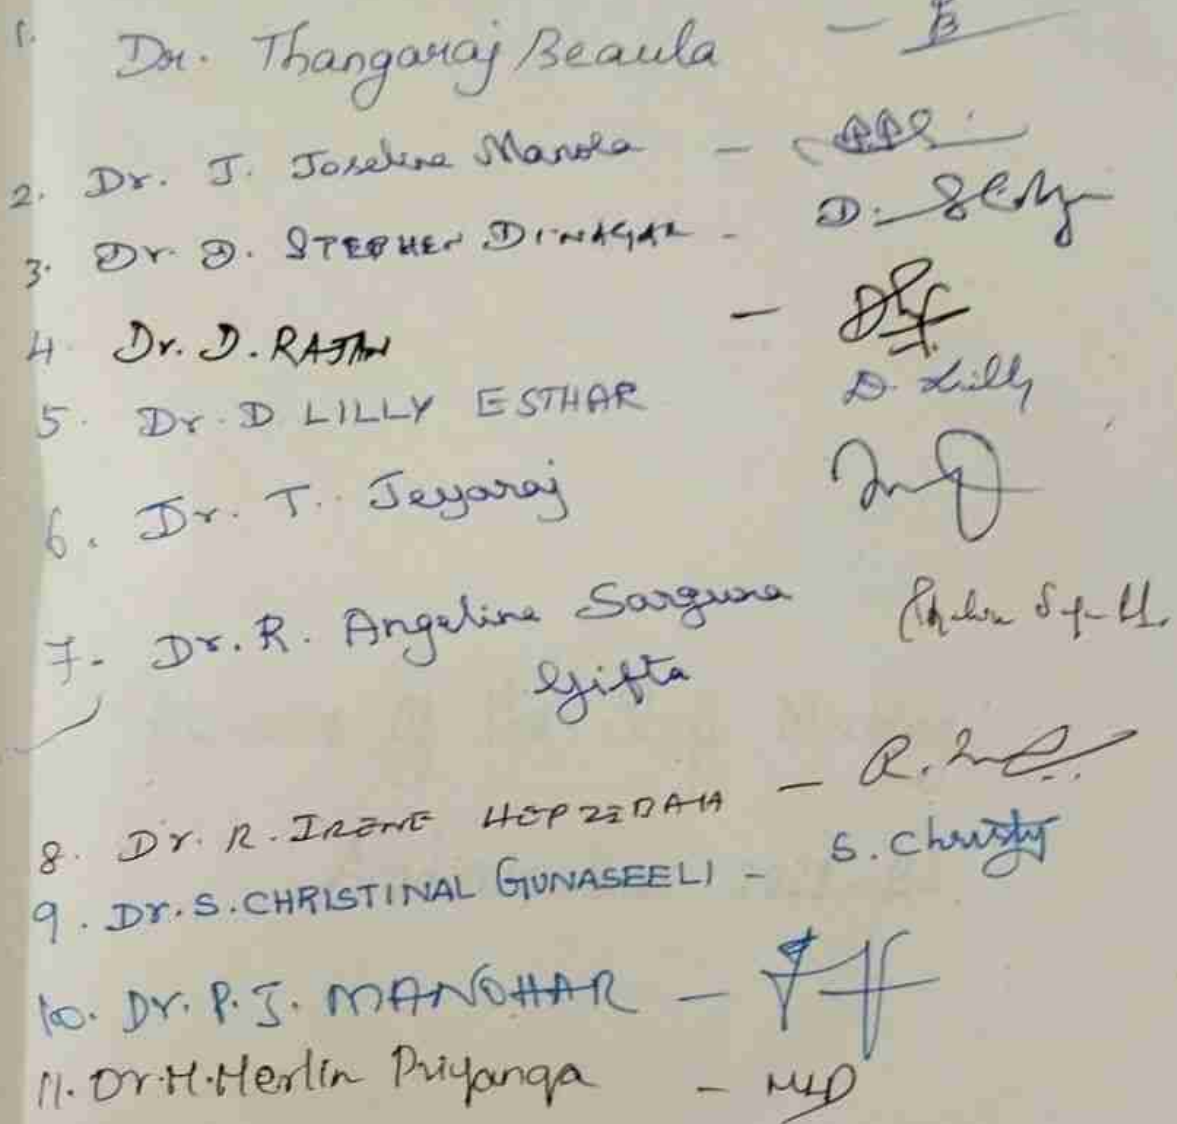 1. Dr. Thangaraj Beaula - B
2. Dr. J. Joseline Manola -
3. Dr. D. STEPHEN DINAGAR - D.
4 Dr. D. RAJAN -
5. Dr. D LILLY ESTHAR D. Lilly
6. Dr. T. Jeyaraj
7. Dr. R. Angeline Sarguna
Gifta
8. Dr. R. IRENE HEPZIBAH - R.
9. Dr. S. CHRISTINAL GUNASEELI - S. Christy
10. Dr. P. J. MANOHAR -
11. Dr. H. Herlin Priyanga -